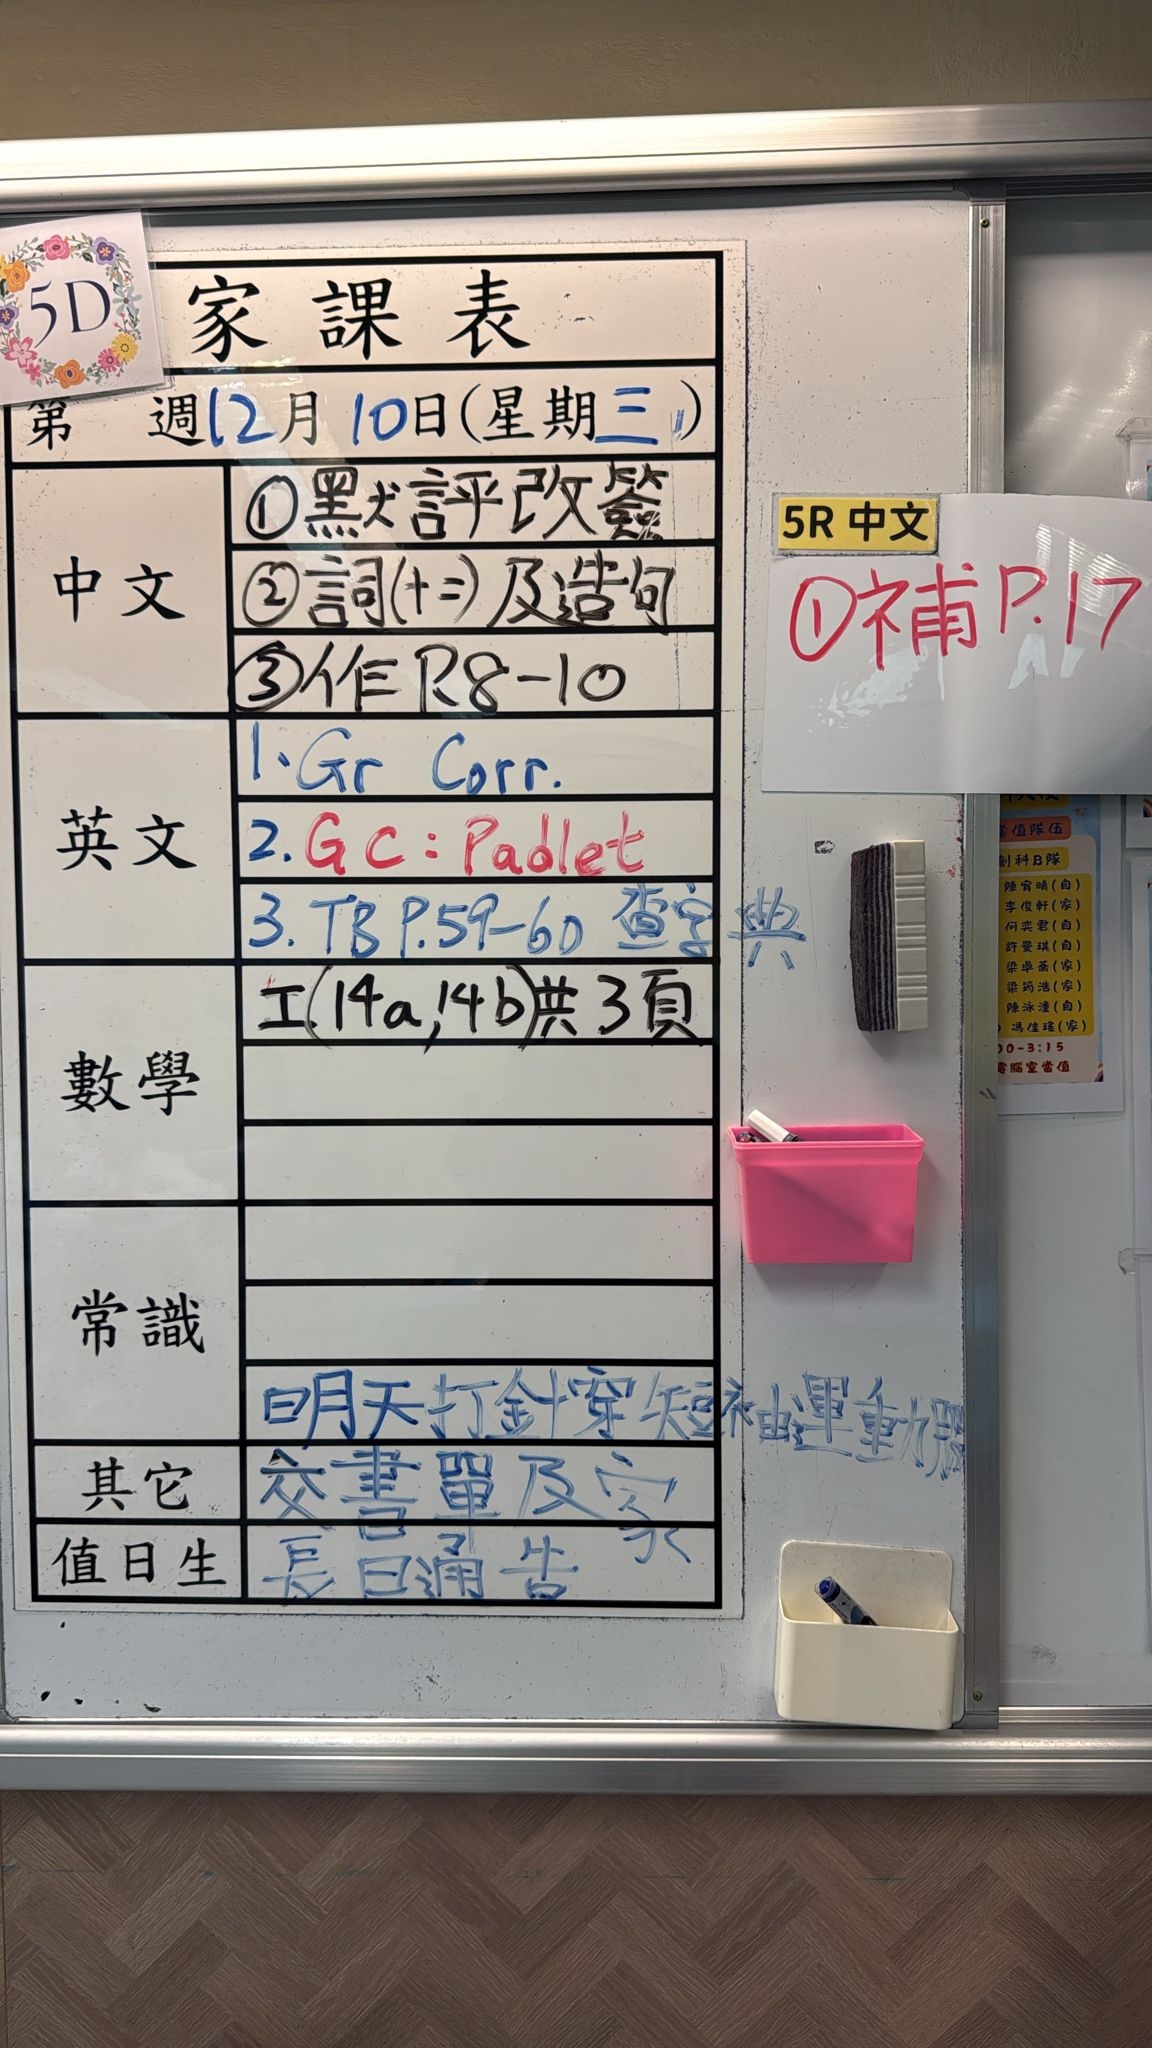 5D
家課表
第 週12月10日(星期三)
中文
①默評改簽
②詞(十二)及造句
③作P.8-10
英文
1. Gr Corr.
2. GC: Padlet
3. TB P.59-60 查字典
數學
工(14a,14b)共3頁
常識
明天打針穿短袖運動服
其它
交書單及家
值日生
長日通告
5R 中文
①補P.17
當值隊伍
創科B隊
陳宥晴(自)
李俊軒(家)
何奕君(自)
許曼琪(自)
梁卓喬(家)
梁筠浩(家)
陳泳潼(自)
馮佳瑤(家)
00-3:15
電腦室當值